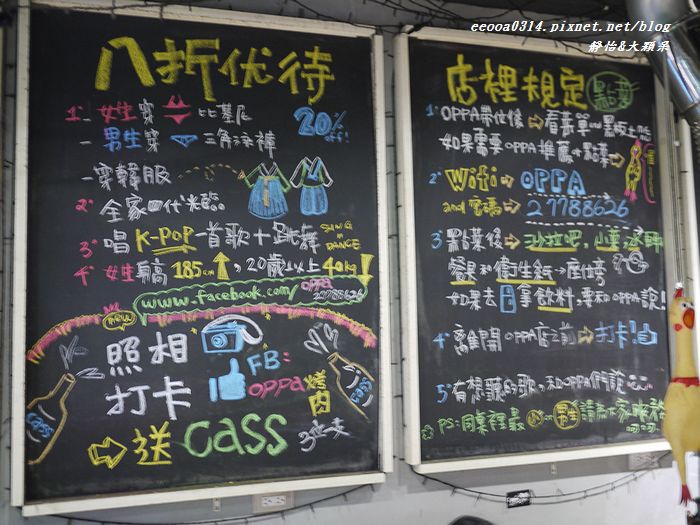 eeooa0314.pixnet.net/blog
靜怡&大顆呆
八折优待
1. 女生穿 比基尼
- 男生穿 三角泳褲
20% off!
- 穿韓服
2. 全家四代光臨
3. 唱 K-POP 一首歌+跳舞 SING & DANCE
4. 女生身高 185cm↑, 20歲以上 40kg↓
www.facebook.com/oppa27788626
new
照相
打卡
FB:
OPPA 烤肉
⇨ 送 cass
cass
店裡規定
點菜
1. OPPA帶位後⇨看菜單and黑板
如果需要OPPA推薦
2. Wifi⇨OPPA
and 密碼⇨27788626
3. 點菜後⇨沙拉吧, 小菜,
餐具和衛生紙→座位旁
如果去 拿飲料, 要和OPPA說!
4. 離開OPPA店之前⇨打卡!
5. 有想聽的歌, 和OPPA們說
PS: 同桌裡最